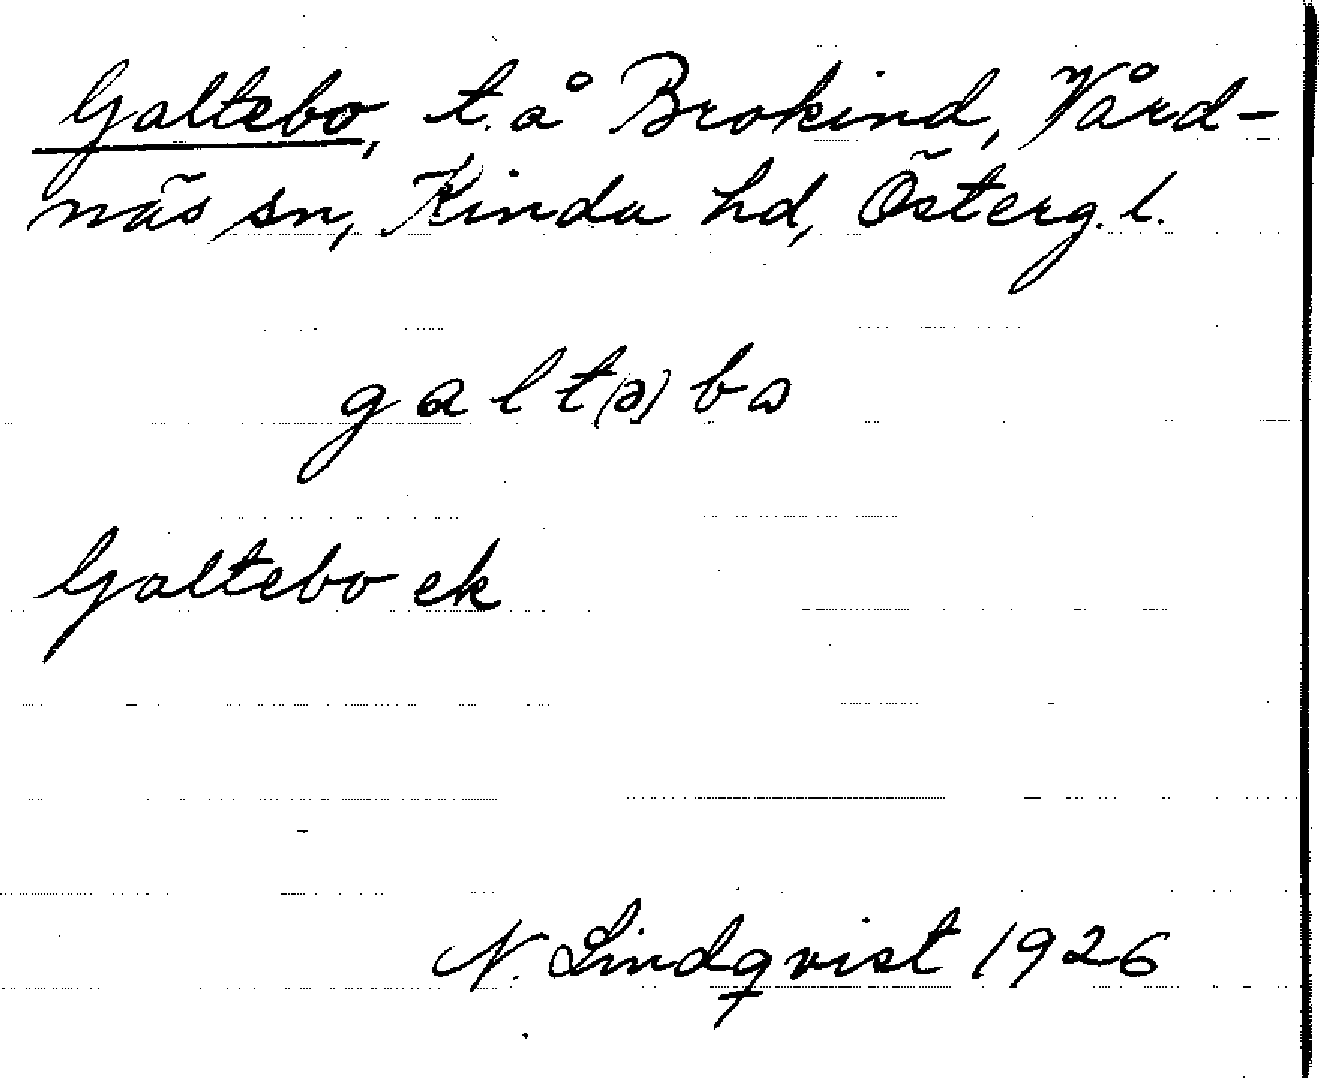 Galtebo, t. å Brokind, Vård-
näs sn, Kinda hd, Österg. l.
galt(ə)bo
Galtebo ek
N. Lindqvist 1926